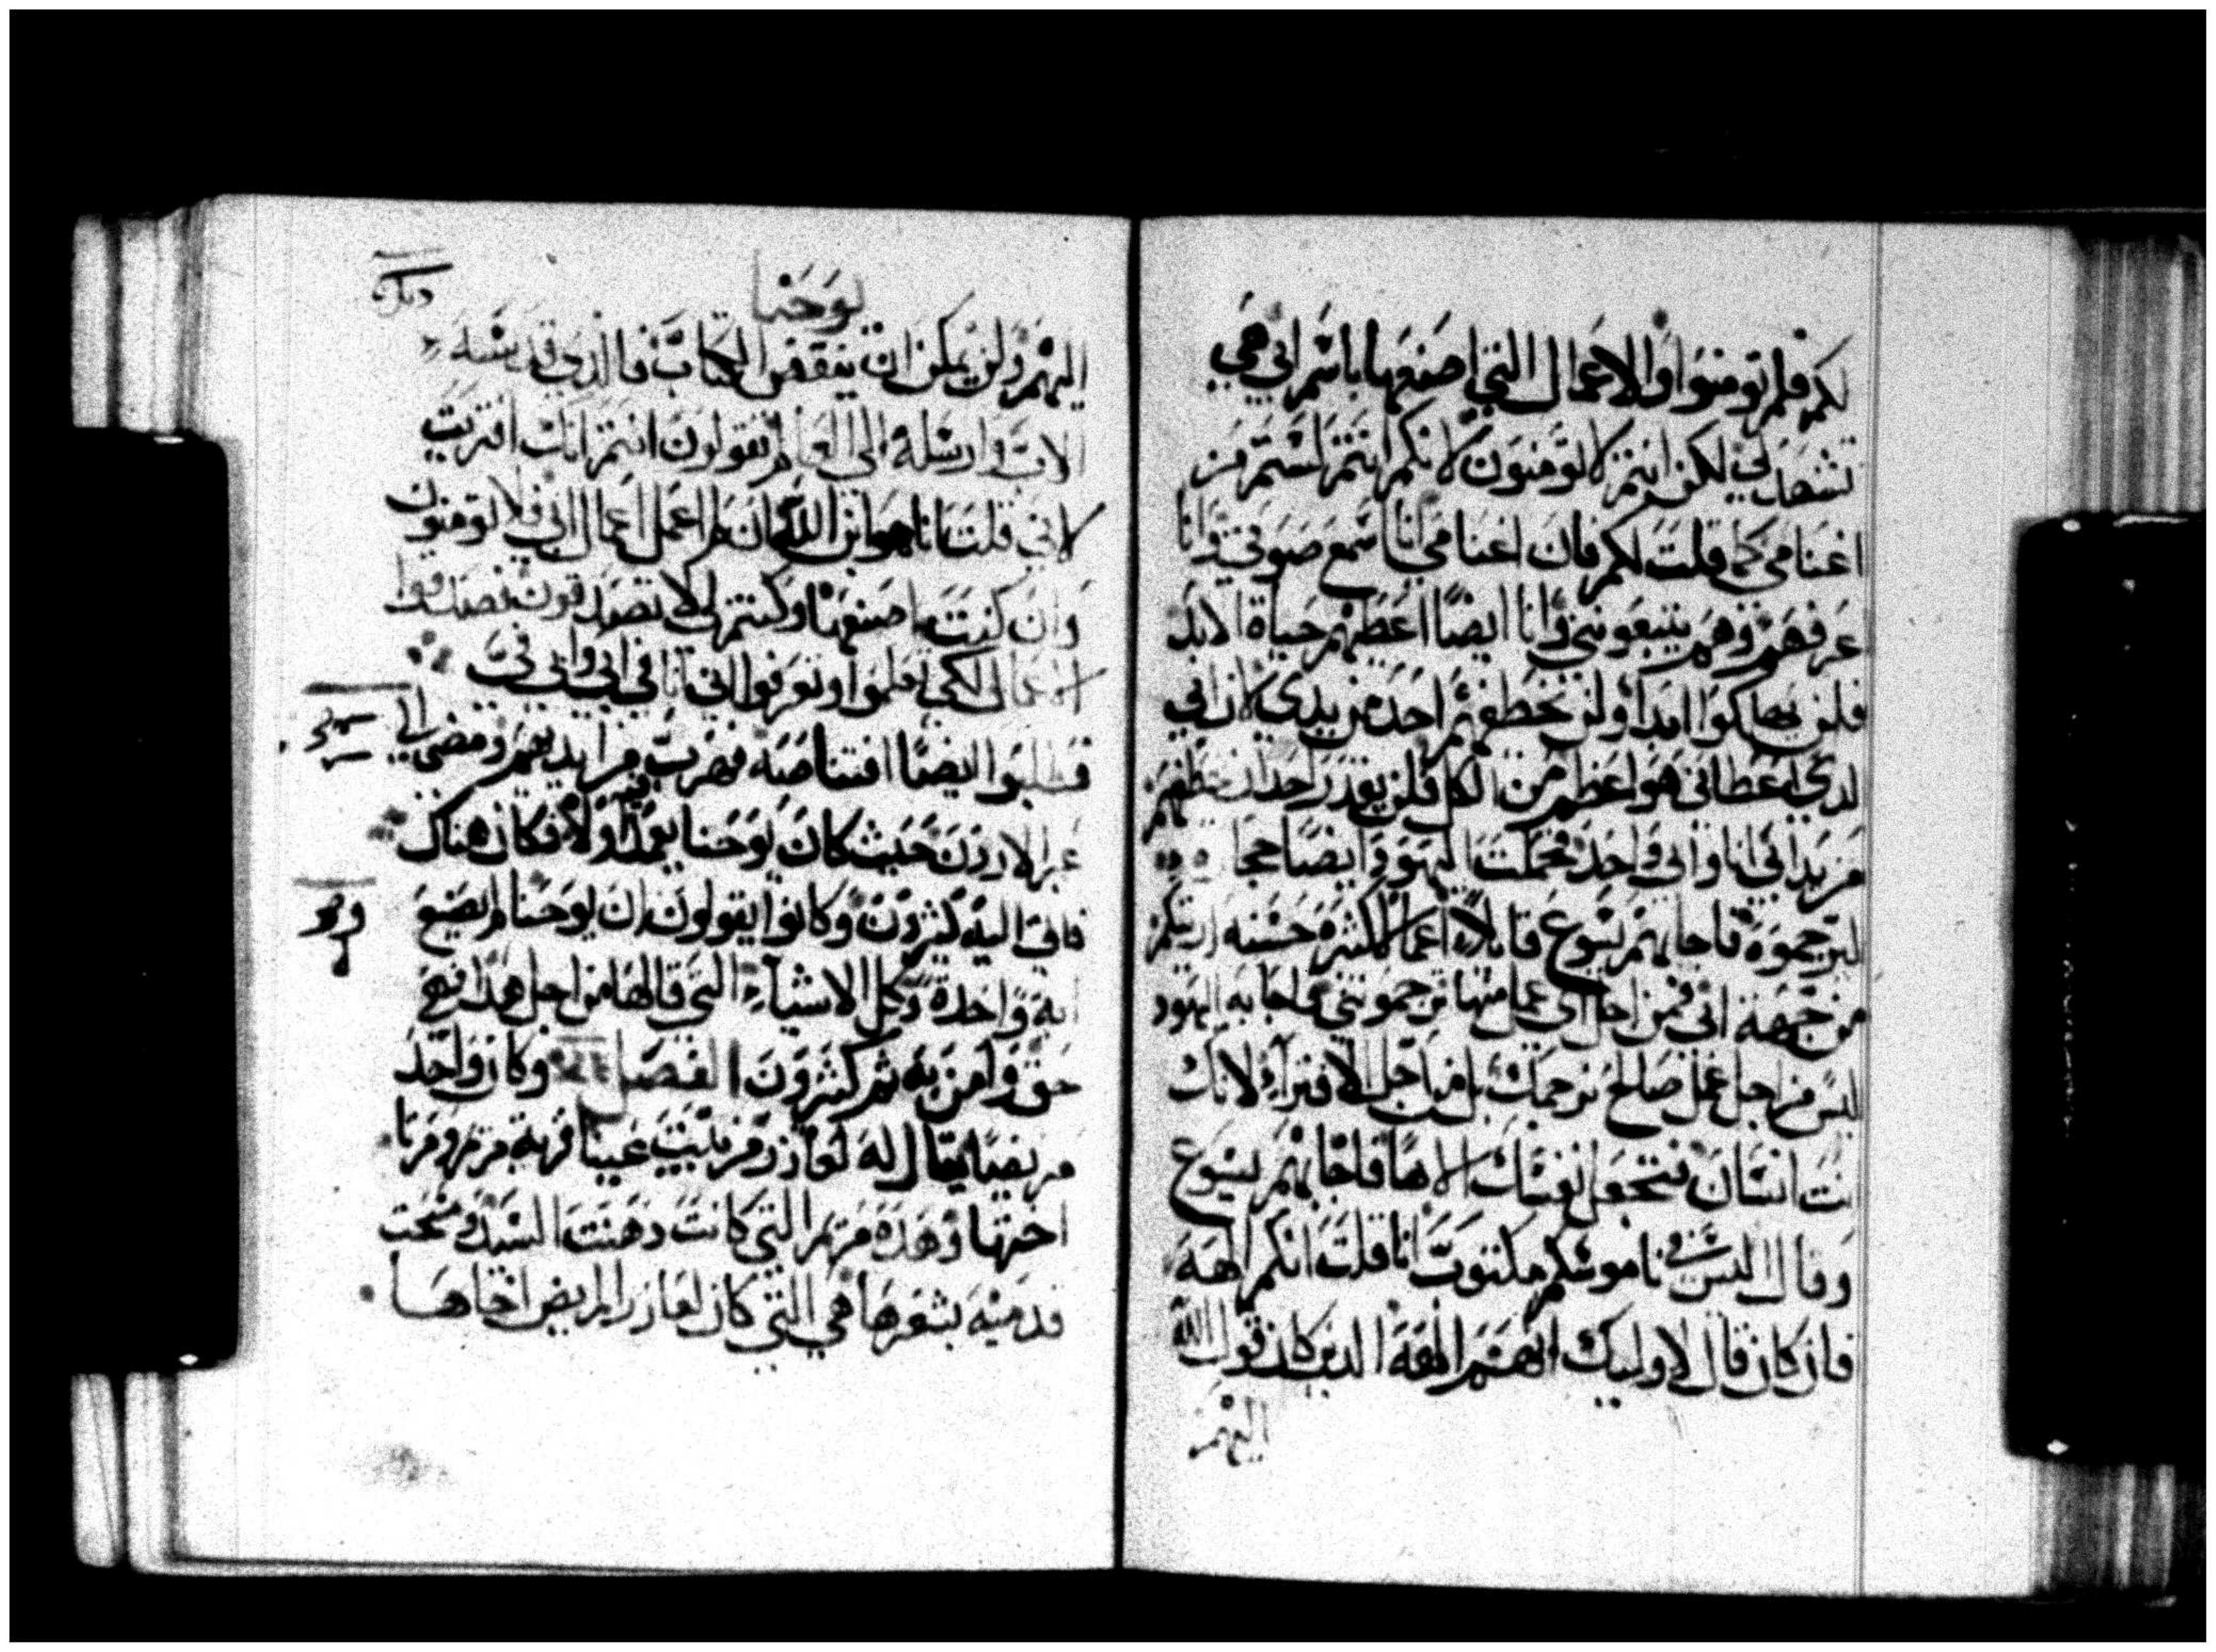 لكم فلم تومنوا والاعمال التي اصنعها باسم ابي هي
تشهد لي لكن انتم لا تومنون لانكم انتم لستم من
اغنامي كما قلت لكم فان اغنامي انا تسمع صوتي وانا
عرفهم وهم يتبعوني وانا ايضا اعطيهم حياة الابد
فلن يهلكوا ابدا ولن يخطفهم احد من يدي لان ابي
لدي اعطاني هو اعظم من الكل فلن يقدر احد ان يخطفهم
من يد ابي انا وابي واحد فحملت اليهود ايضا حجا
ليرجموه فاجابهم يسوع قايلا اعمال كثيره حسنه اريتكم
من جهة ابي فمن اجل اي عمل منها ترجموني فاجابه اليهود
ليس من اجل عمل صالح نرجمك بل من اجل الافتراء لانك
نت انسان فتجعل نفسك الاها فاجابهم يسوع
وقال اليس في ناموسكم مكتوب انا قلت انكم الهه
فان كان قال لاوليك انهم الهه الدين كان قول الله
اليهم
يوحنا
اليهم ولن يمكن ان ينتقض الكتاب فالذي قدسه
الاب وارسله الى العالم تقولون انتم انك افتريت
لاني قلت انا هو ابن الله ان لم اعمل اعمال ابي فلا تومنون
وان كنت اصنعها وكنتم لي لا تصدقون فصدقوا
اعمالي لكي تعلموا وتعرفوا اني انا في ابي وابي في
فطلبوا ايضا اقتناصه فهرب من ايديهم ومضى الى
عبر الاردن حيث كان يوحنا يعمد فيه اولا فكان هناك
فاتى اليه كثيرون وكانوا يقولون ان يوحنا لم يصنع
ايه واحدة وكل الاشياء التي قالها من اجل هذا فهي
حق وامن به ثم كثيرون الفصل وكان واحد
مريضا يقال له لعازر من بيت عنيا قرية مريم ومرتا
اختها وهذه مريم التي كانت دهنت السيد ومسحت
قدميه بشعرها هي التي كان لعازر المريض اخاها